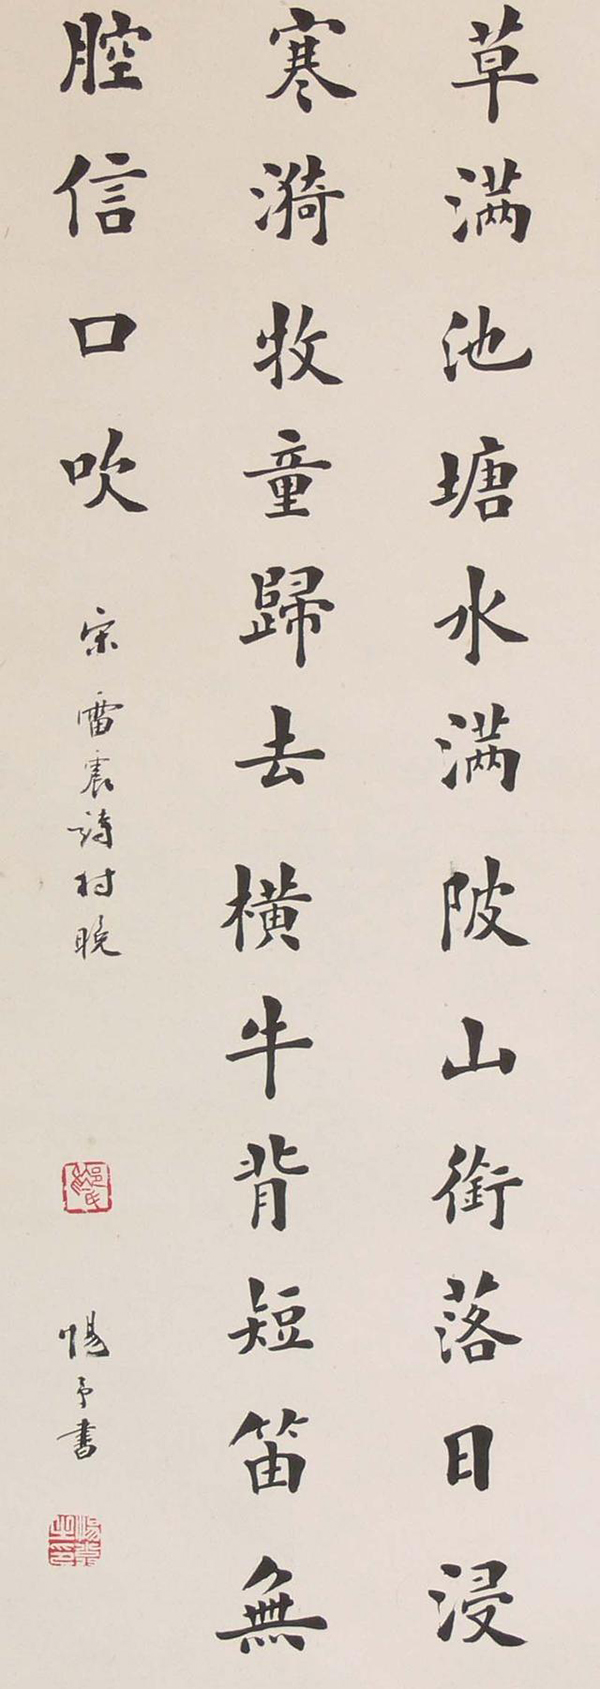 草满池塘水满陂山銜落日浸
寒漪牧童歸去横牛背短笛無
腔信口吹
宋雷震詩村晚
予書